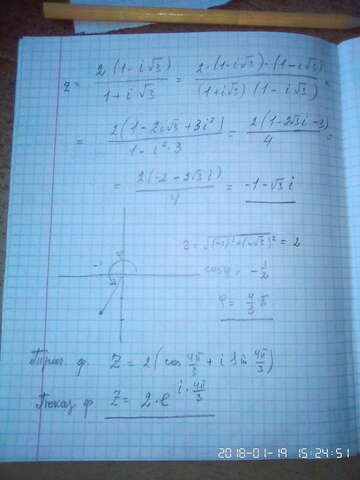 z = \frac{2(1-i\sqrt{3})}{1+i\sqrt{3}} = \frac{2·(1-i\sqrt{3})·(1-i\sqrt{3})}{(1+i\sqrt{3})(1-i\sqrt{3})} =
= \frac{2(1-2i\sqrt{3}+3i²)}{1-i²·3} = \frac{2(1-2\sqrt{3}i-3)}{4} =
= \frac{2(-2-2\sqrt{3}i)}{4} = -1-\sqrt{3}i
-1
φ
r = \sqrt{(-1)²+(-\sqrt{3})²} = 2
cos φ = -\frac{1}{2}
φ = \frac{4}{3}π
Триг. ф. Z = 2(cos \frac{4π}{3} + i sin \frac{4π}{3})
Показ. ф. Z = 2·e^{i·\frac{4π}{3}}
2018-01-19 15:24:51